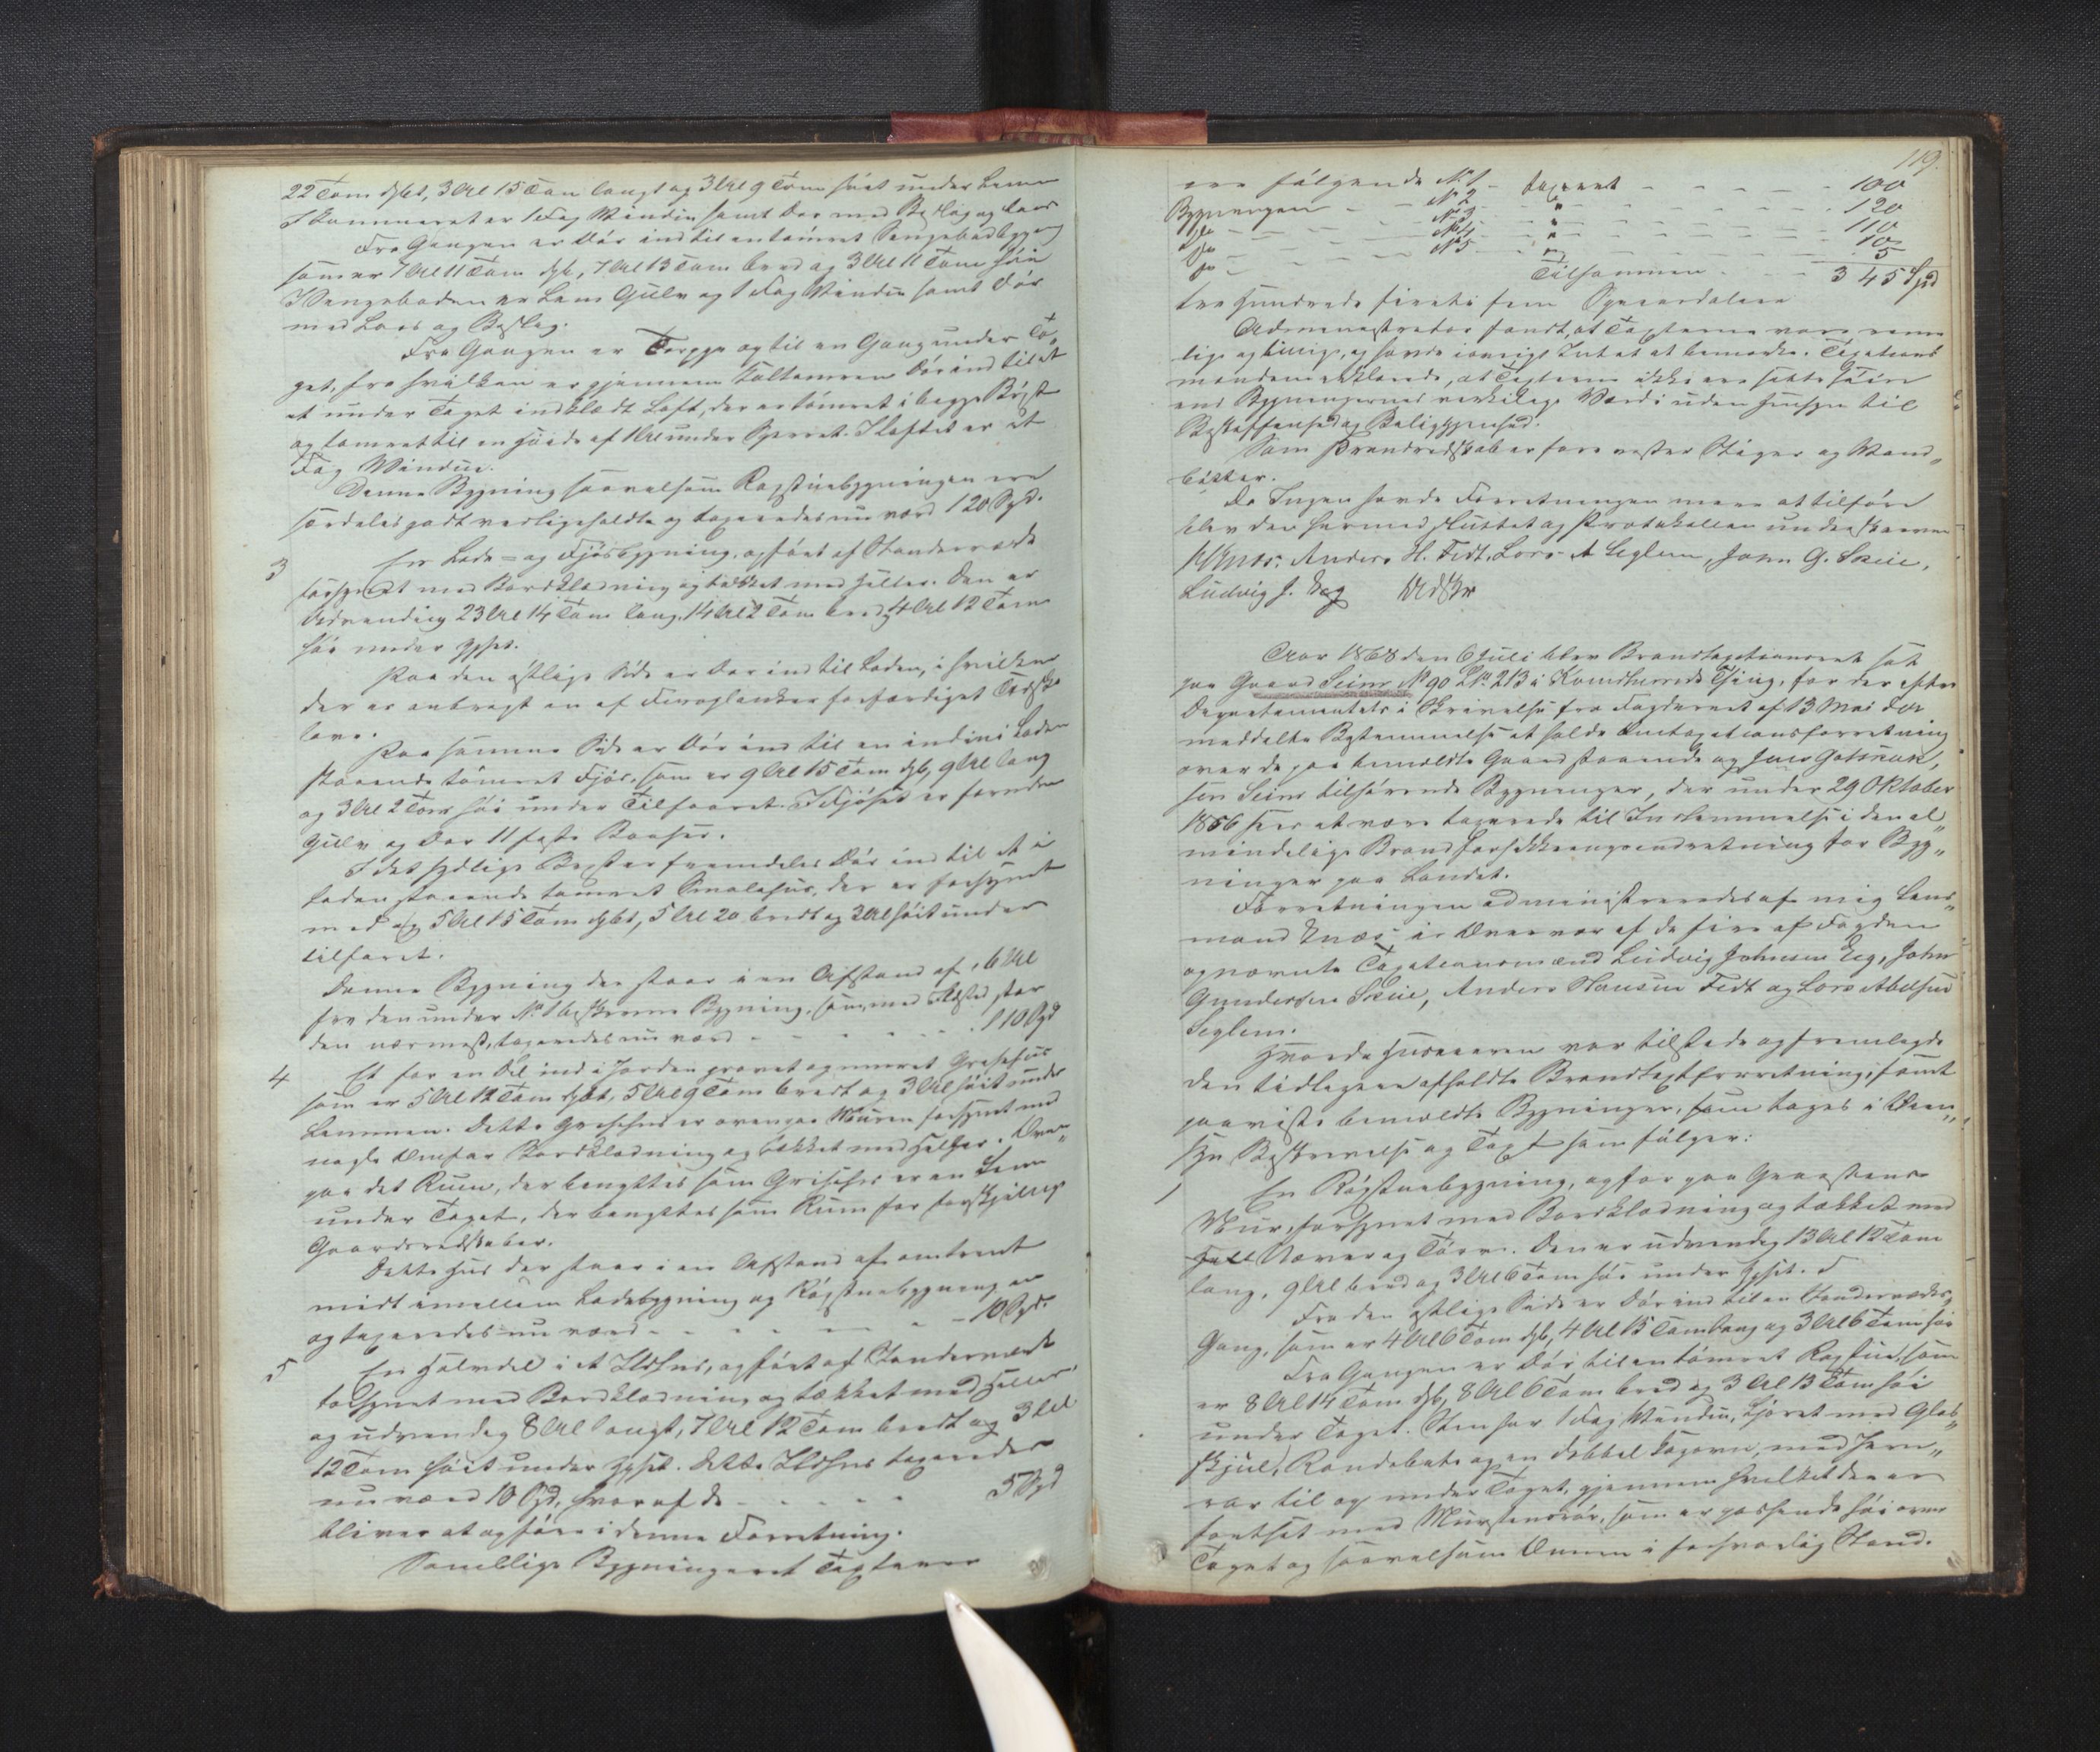 22 Tom dybt, 3 Al 15 Tom langt og 3 Al 9 Tom høit under Lemen
I Kammeret er 1 Fag Vinduer samt Dør med Beslag og Laas
Fra Gangen er Dør ind til en tømret Sengebodbygning
som er 7 Al 11 Tom dyb, 7 Al 13 Tom bred og 3 Al 11 Tom høi
I Sengeboden er Lem Gulv og 1 Fag Vinduer samt Dør
med Laas og Beslag.
Fra Gangen er Trappe op til en Gang under Ta,,
get, fra hvilken er gjennem Dør ind til et
et under Taget indklædt Loft, der er tømret i begge Bryst
og tømret til en Høide af 1 Al under Sperret. I Loftet er et
Fag Vinduer.
Denne Bygning saavelsom Røgstuebygningen ere
særdeles godt vedligeholdte og taxeredes nu værd 120 Spd.
3 En Lade= og Fjøsbygning, opført af Stenderværk
forsynet med Bordklædning og tækket med Heller. Den er
Udvendig 23 Al 14 Tom lang, 14 Al 2 Tom bred, 4 Al 12 Tom
høi under Gesims.
Paa den østlige Side er Dør ind til Laden, i hvilken
der er anbragt en af Furuplanker forfærdiget Tærske
lave.
Paa samme Side er Dør ind til en inde i Laden
staaende tømret Fjøs, som er 9 Al 15 Tom dyb, 9 Al lang
og 3 Al 2 Tom høi under Tilfaret. I Fjøset er
Gulv og Dør 11 faste Baaser.
I det sydlige Bryst er fremdeles Dør ind til et i
Laden staaende tømret Smalehus, der er forsynet
med og 5 Al 15 Tom dybt, 5 Al 20 bredt og 3 Al høit under
tilfaret.
Denne Bygning der staar i en Afstand af 16 Al
fra den under No 1 beskrevne Bygning, som, med Ildsted staar
den nærmest, taxeredes nu værd - - - - - 110 Spd
4 Et for en Del ind i Jorden gravet og muret Grisehus
som er 5 Al 12 Tom dybt, 5 Al 9 Tom bredt og 3 Al høit under
Lemmen. Dette Grisehus er ovenpaa Muren forsynet med
Bordklædning og tækket med Heller. Oven,,
paa det Rum, der benyttes som Grisehus er en Lem
under Taget, der benyttes som Rum for forskjellige
Gaardsredskaber.
Dette Hus der staar i en Afstand af omtrent
midt imellem Ladebygning og Røgstuebygningen
og taxeredes nu værd - - - - - - 10 Spd.
5 En Halvdel i et Ildhus, opført af Stenderværk
forsynet med Bordklædning og tækket med Heller
og udvendig 8 Al langt, 7 Al 12 Tom bredt og 3 Al
12 Tom høit under Gesims. Dette Ildhus taxeredes
nu værd 10 Spd, hvoraf de - - - - - 5 Spd
bliver at opføre i denne Forretning.
Samtlige Bygningers Taxter
119.
ere følgende No 1 - taxeret - - - - - 100
Bygningen - - No 2 - " - - - - - 120
do - - - No 3 - " - - - - - 110
do - - - No 4 - " - - - - - 10
do - - - No 5 - " - - - - - 5
Tilsammen - - - 345 Spd
tre Hundrede firti fem Speciedaler
Administrator fandt, at Taxterne vare rime
lige og billige, og havde iøvrigt Intet at bemærke. Taxations
mændene erklærede, at Taxterne ikke ere satte høiere
end Bygningernes virkelige Værdi uden Hensyn til
Beskaffenhed og Beliggenhed.
Som Brandredskaber forevistes Stiger og Vand,,
bøtter.
Da Ingen havde Forretningen mere at tilføre
blev den hermed sluttet og Protokollen underskreven
Knæs. Anders H. Tedt, Lars A Seglem, John G. Skeie,
Ludvig J. Eeg
Aar 1868 den 6 Juli blev Brandtaxationsret sat
paa Gaard Seim No 90 LNo 213 i Kvindherreds Thing, for der efter
Departementets i Skrivelse fra Fogderiet af 13 Mai d. A.
meddelte Bestemmelse at holde Omtaxationsforretning
over de paa bemeldte Gaard staaende og Jens Gotskalk,,
sen Seim tilhørende Bygninger, der under 29 Oktober
1856 sees at være taxerede til Indlemmelse i den al,,
mindelige Brandforsikkringsindretning for Byg,,
ninger paa Landet.
Forretningen administreredes af mig Lens,,
mand Knæs i Overvær af de fire af Fogden
opnævnte Taxationsmænd Ludvig Johnsen Eeg, John
Gundersen Skeie, Anders Hansen Tedt og Lars Abelsen
Seglem.
Hvorda Huseieren var tilstede og fremlagde
den tidligere afholdte Brandtaxtforretning, samt
paaviste bemeldte Bygninger, som toges i Øien,,
syn Beskrivelse og Taxt som følger:
1 En Røgstuebygning, opført paa Graastens
Mur, forsynet med Bordklædning og tækket med
Næver og Torv. Den er udvendig 13 Al 12 Tom
lang, 9 Al bred og 3 Al 6 Tom høi under Gesims.
Fra den østlige Side er Dør ind til en Stenderværks
Gang, som er 4 Al 6 Tom dyb, 4 Al 15 Tom lang og 3 Al 6 Tom høi
Fra Gangen er Dør til en tømret Røgstue, som
er 8 Al 14 Tom dyb, 8 Al 6 Tom bred og 3 Al 13 Tom høi
under Taget. Den har 1 Fag Vinduer, Ljoret med Glas,,
skjul, og en dobbel Kogovn, med Jern,,
rør til op under Taget, gjennem hvilket den er
fortsat med Murstensrør, som er passende høi over
Taget og saavelsom Ovnen i forsvarlig Stand.